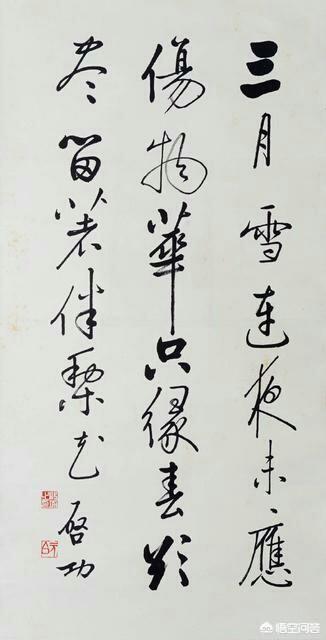 三月雪連夜未應
傷物華只緣春欲
尽留著伴梨花
啓功
悟空问答